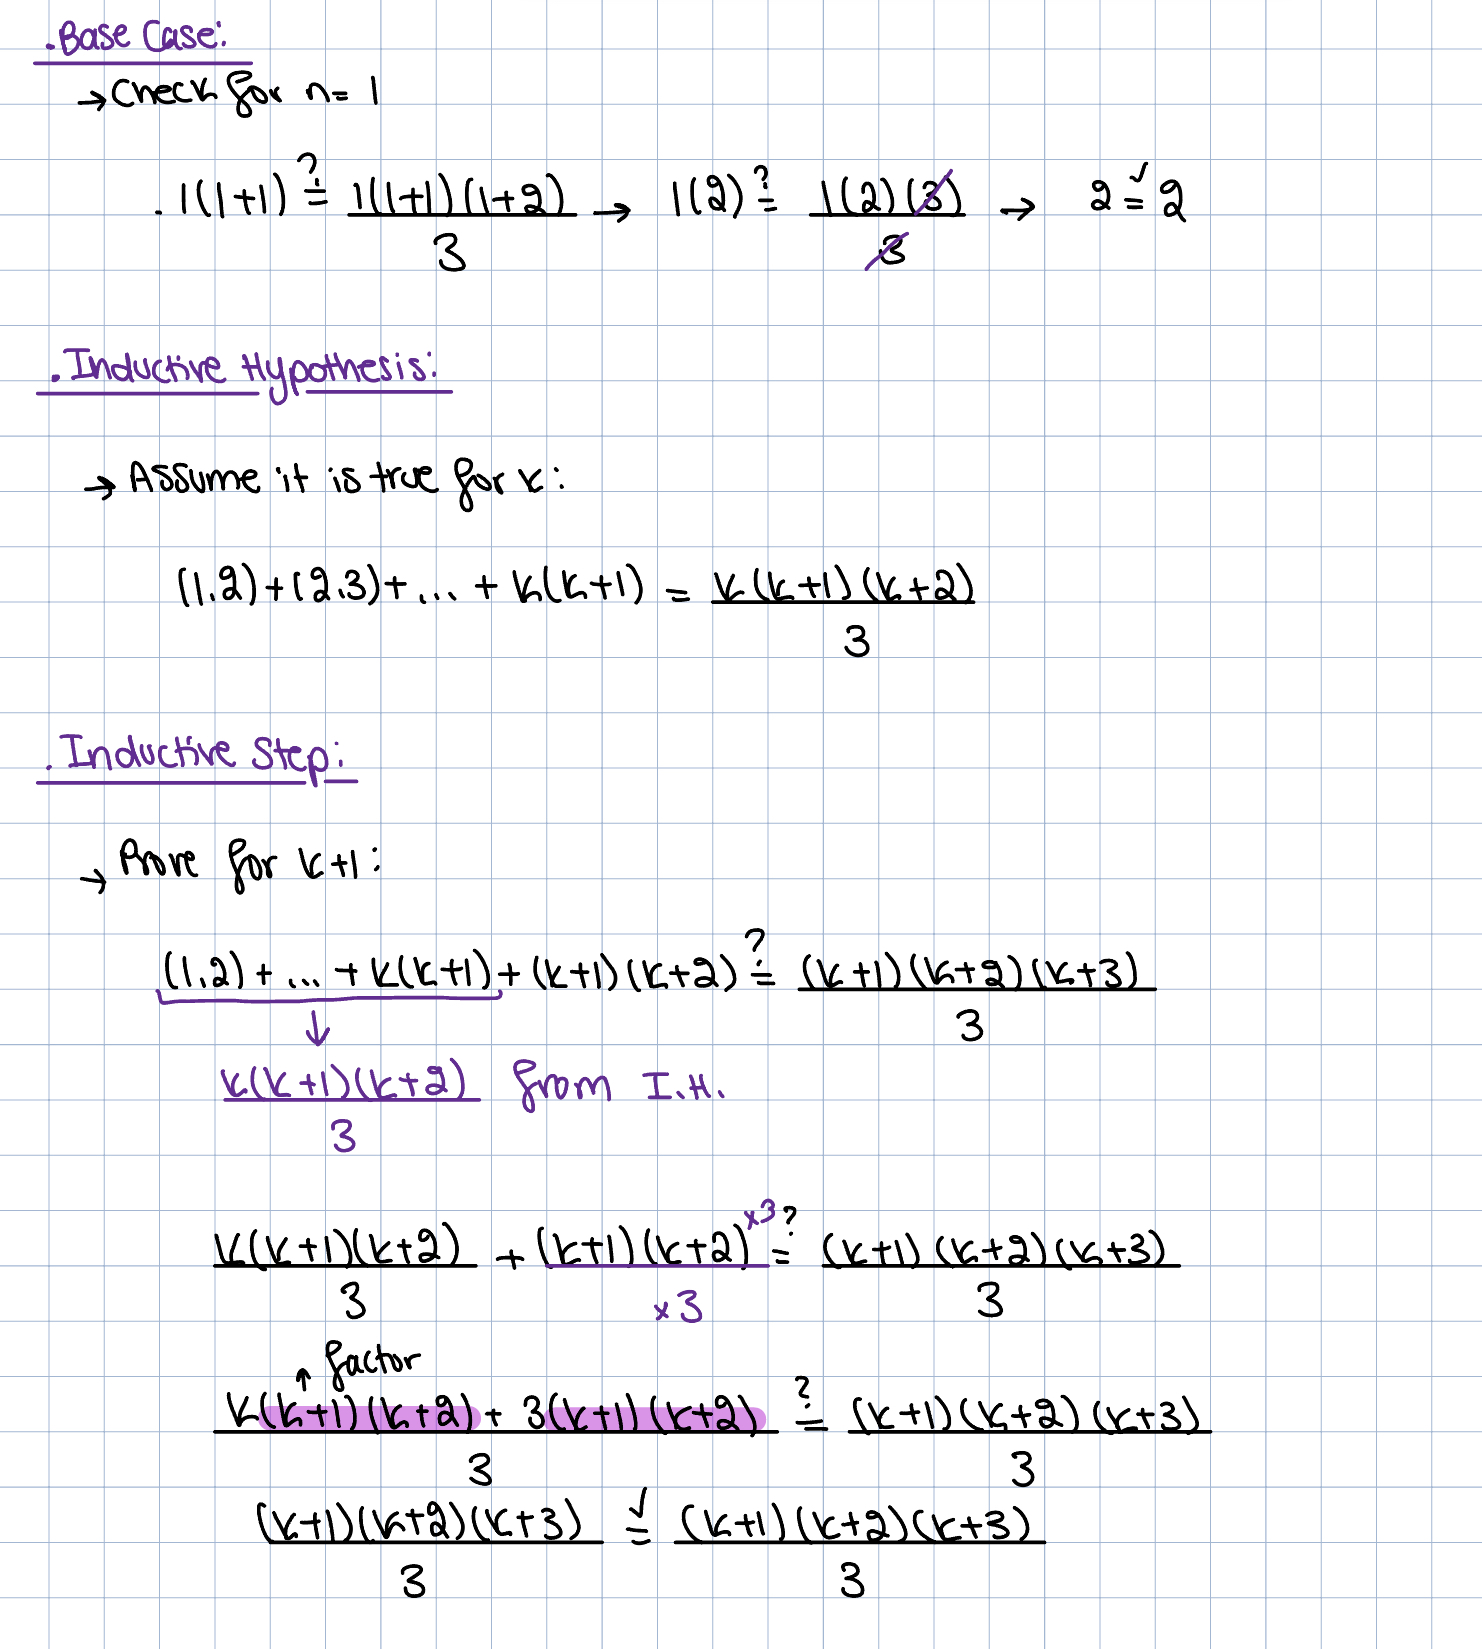 . Base Case:
→ Check for n = 1
. 1(1+1) ?= 1(1+1)(1+2) / 3 → 1(2) ?= 1(2)(3) / 3 → 2 ✓= 2
. Inductive Hypothesis:
→ Assume it is true for k:
(1.2)+(2.3)+... + k(k+1) = k(k+1)(k+2) / 3
. Inductive Step:
→ Prove for k+1:
(1.2) + ... + k(k+1) + (k+1)(k+2) ?= (k+1)(k+2)(k+3) / 3
↓
k(k+1)(k+2) / 3 from I.H.
k(k+1)(k+2) / 3 + (k+1)(k+2) ×3 / ×3 ?= (k+1)(k+2)(k+3) / 3
↑ factor
k(k+1)(k+2) + 3(k+1)(k+2) / 3 ?= (k+1)(k+2)(k+3) / 3
(k+1)(k+2)(k+3) / 3 ✓= (k+1)(k+2)(k+3) / 3